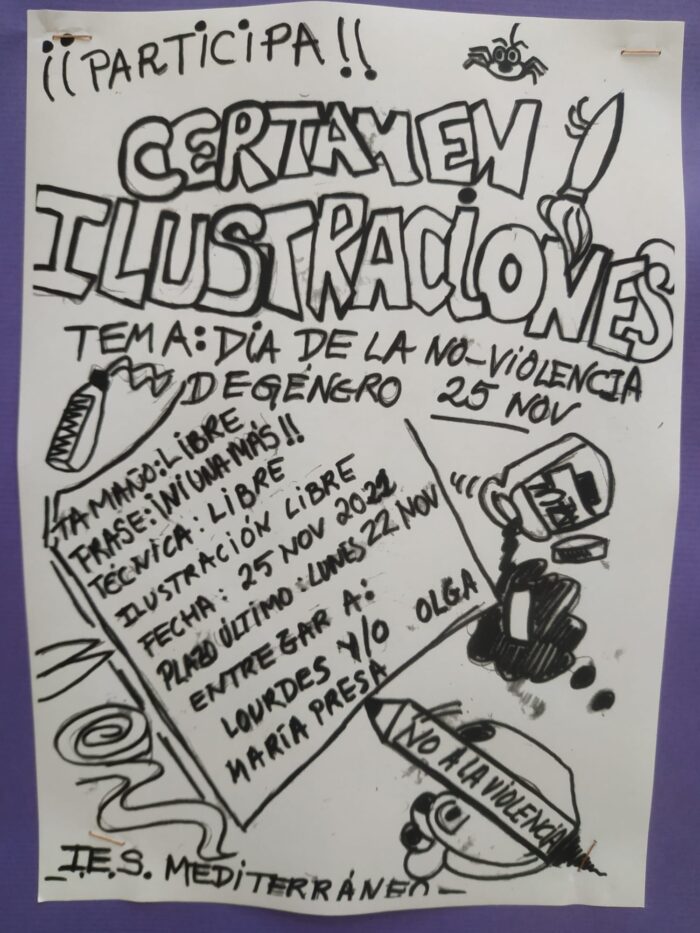 ¡¡PARTICIPA!!
CERTAMEN
ILUSTRACIONES
TEMA: DÍA DE LA NO-VIOLENCIA
DE GÉNERO 25 NOV
TAMAÑO: LIBRE
FRASE: ¡NI UNA MÁS!!
TÉCNICA: LIBRE
ILUSTRACIÓN LIBRE
FECHA: 25 NOV 2021
PLAZO ÚLTIMO: LUNES 22 NOV
ENTREGAR A:
LOURDES Y/O OLGA
MARÍA PRESA
NO A LA VIOLENCIA
I.E.S. MEDITERRÁNEO